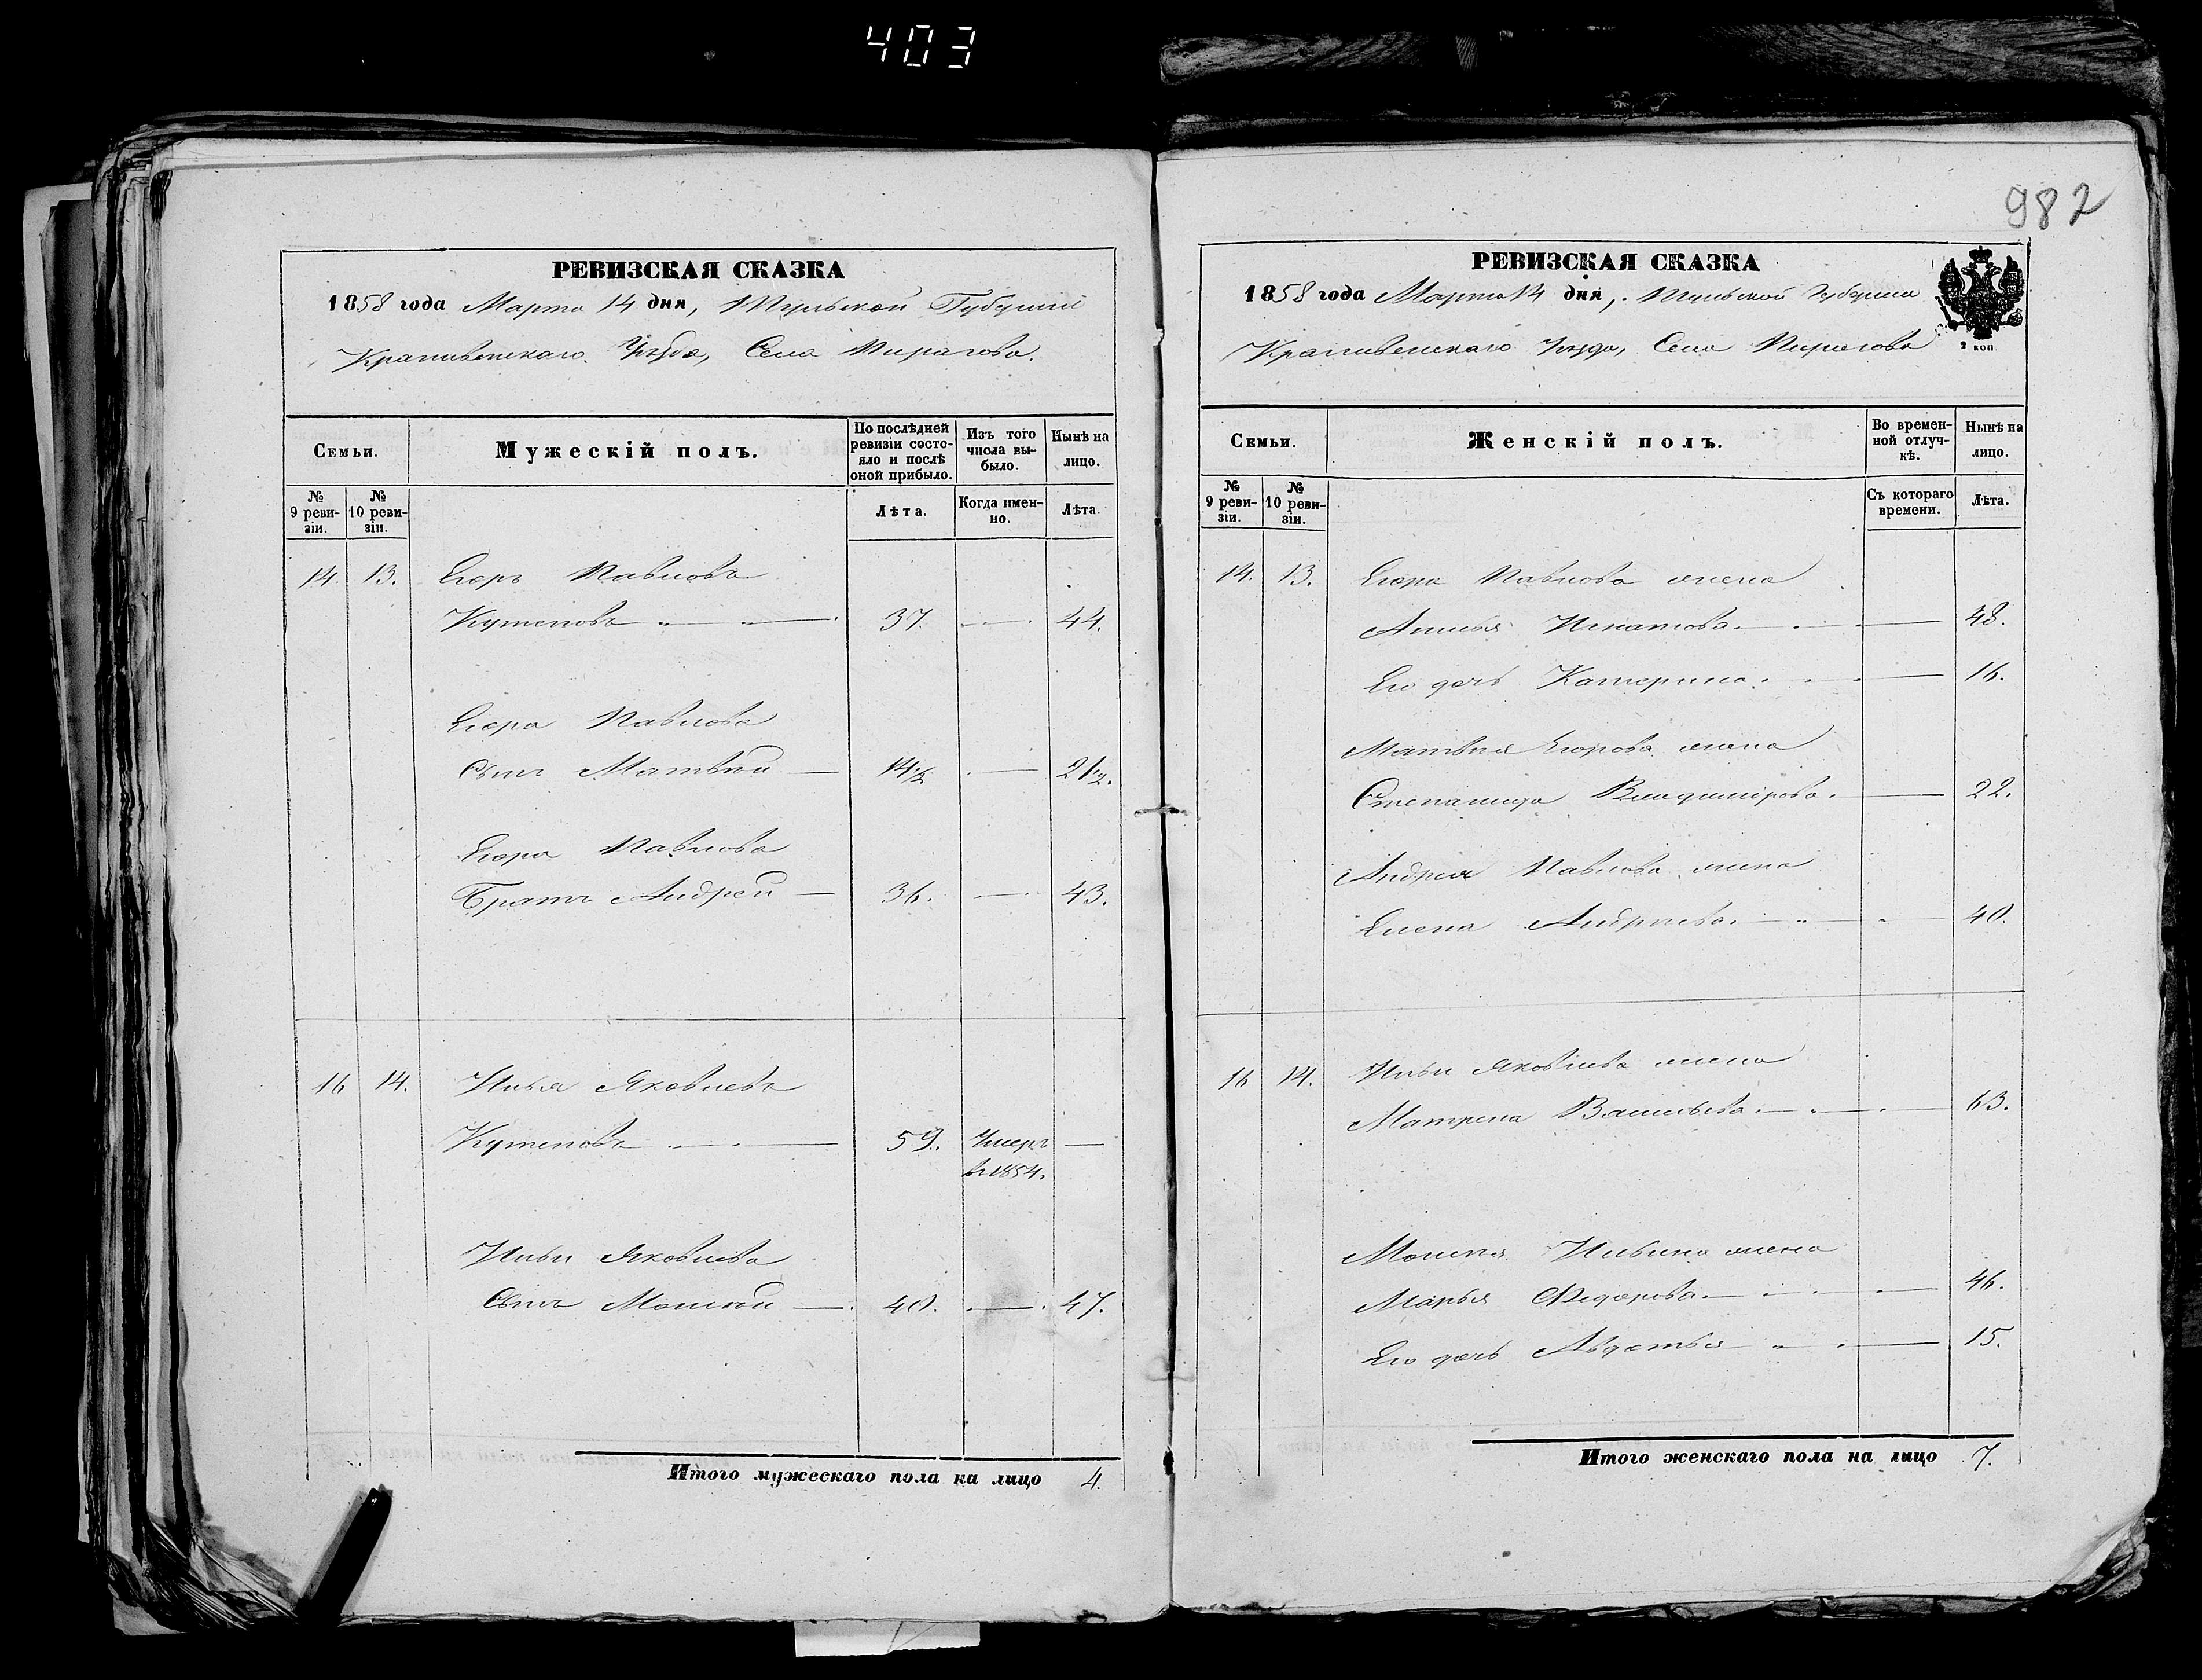 403
982
РЕВИЗСКАЯ СКАЗКА
1858 года Марта 14 дня, Тульской Губернiи
Крапивенскаго Уѣзда, Села Пирагова.
Семьи.
Мужескiй полъ.
По послѣдней ревизiи состояло и послѣ оной прибыло.
Изъ того числа выбыло.
Нынѣ на лицо.
№ 9 ревизiи.
№ 10 ревизiи.
Лѣта.
Когда именно.
Лѣта.
14. 13. Егоръ Павловъ
Кутеповъ 37. 44.
Егора Павлова
Сынъ Матвѣй 14½ 21½.
Егора Павлова
Братъ Андрей 36. 43.
16 14. Илья Яковлевъ
Кутеповъ 59. Умеръ
въ 1854.
Ильи Яковлева
Сынъ Моисей 40. 47.
Итого мужескаго пола на лицо 4.
РЕВИЗСКАЯ СКАЗКА
1858 года Марта 14 дня, Тульской Губернiи
Крапивенскаго Уѣзда, Села Пирагова
2 коп
Семьи.
Женскiй полъ.
Во временной отлучкѣ.
Нынѣ на лицо.
№ 9 ревизiи.
№ 10 ревизiи.
Съ котораго времени.
Лѣта.
14. 13. Егора Павлова жена
Игнатова 48.
Его дочь Катерина 16.
Матвѣя Егорова жена
Степанида Владимiрова. 22.
Андрея Павлова жена
Елена Андреева. 40.
16 14. Ильи Яковлева жена
Матрена Васильева. 63.
Моисея Ильина жена
Марья Федорова. 46.
Его дочь Авдотья 15.
Итого женскаго пола на лицо 7.